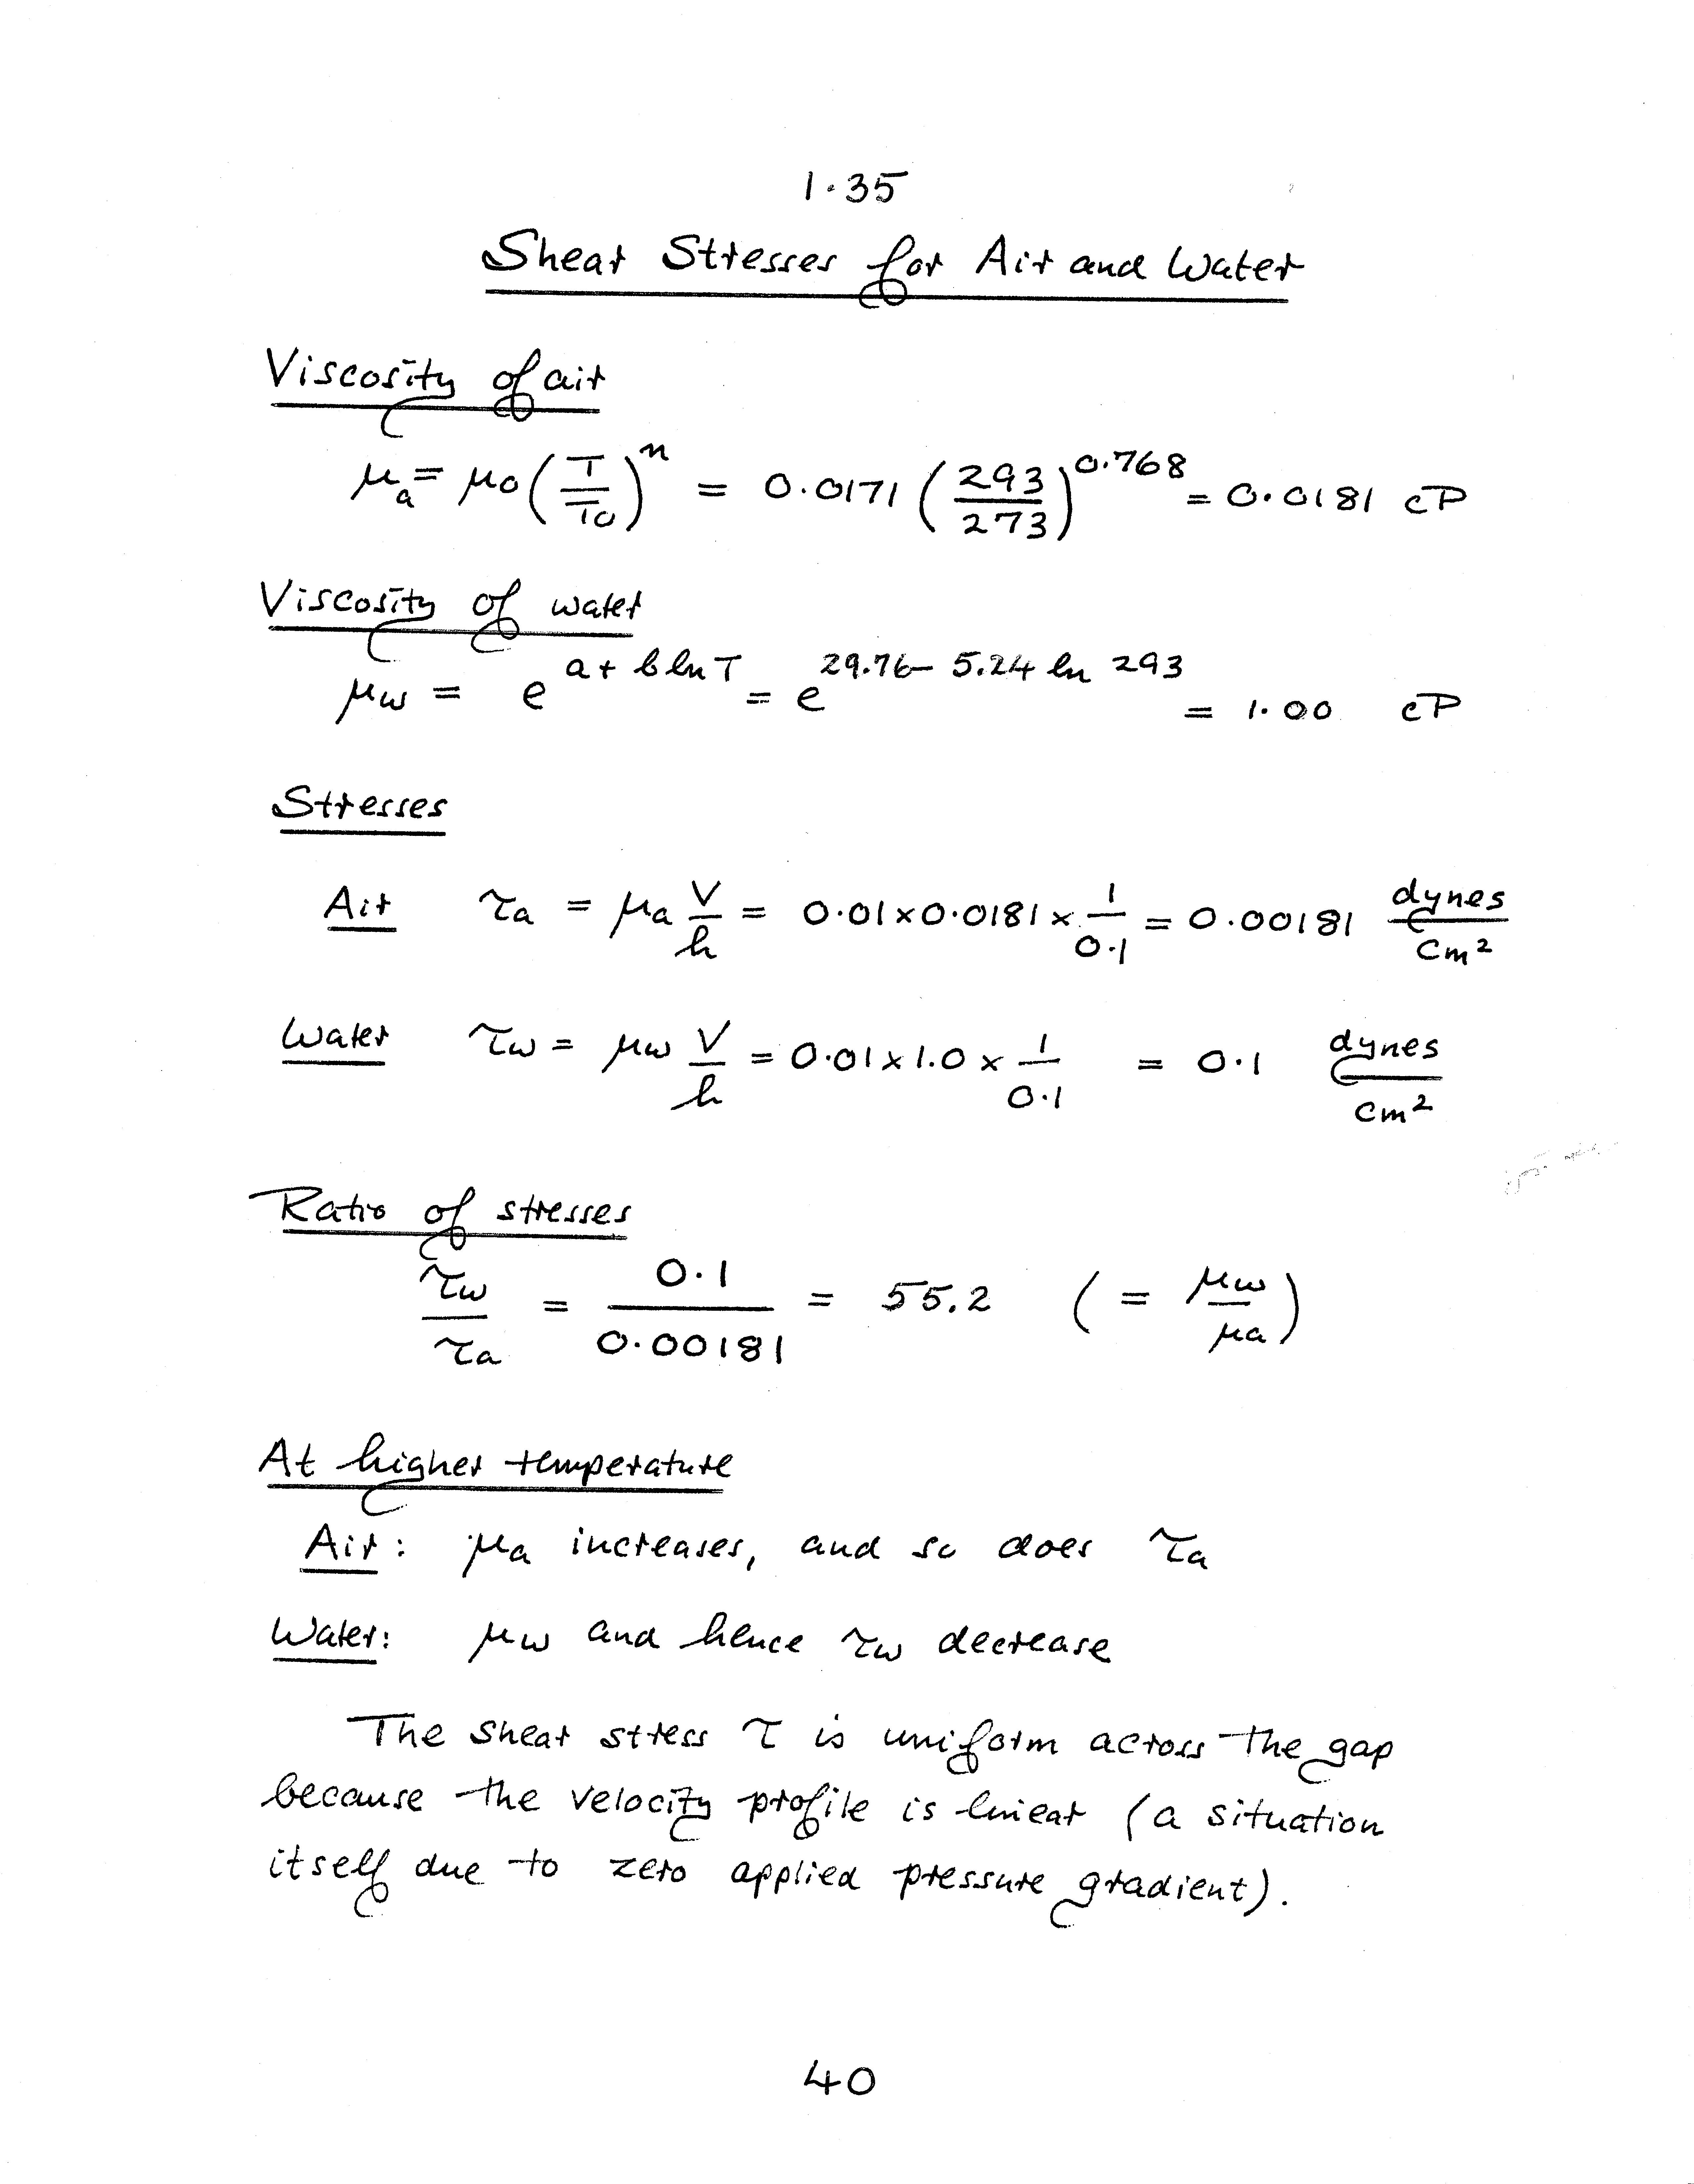 1.35
Shear Stresses for Air and Water
Viscosity of air
μa = μ0 (T/T0)^n = 0.0171 (293/273)^0.768 = 0.0181 cP
Viscosity of water
μw = e^(a + b ln T) = e^(29.76 - 5.24 ln 293) = 1.00 cP
Stresses
Air τa = μa V/h = 0.01 x 0.0181 x 1/0.1 = 0.00181 dynes/cm²
Water τw = μw V/h = 0.01 x 1.0 x 1/0.1 = 0.1 dynes/cm²
Ratio of stresses
τw/τa = 0.1/0.00181 = 55.2 (= μw/μa)
At higher temperature
Air: μa increases, and so does τa
Water: μw and hence τw decrease
The shear stress τ is uniform across the gap
because the velocity profile is linear (a situation
itself due to zero applied pressure gradient).
40